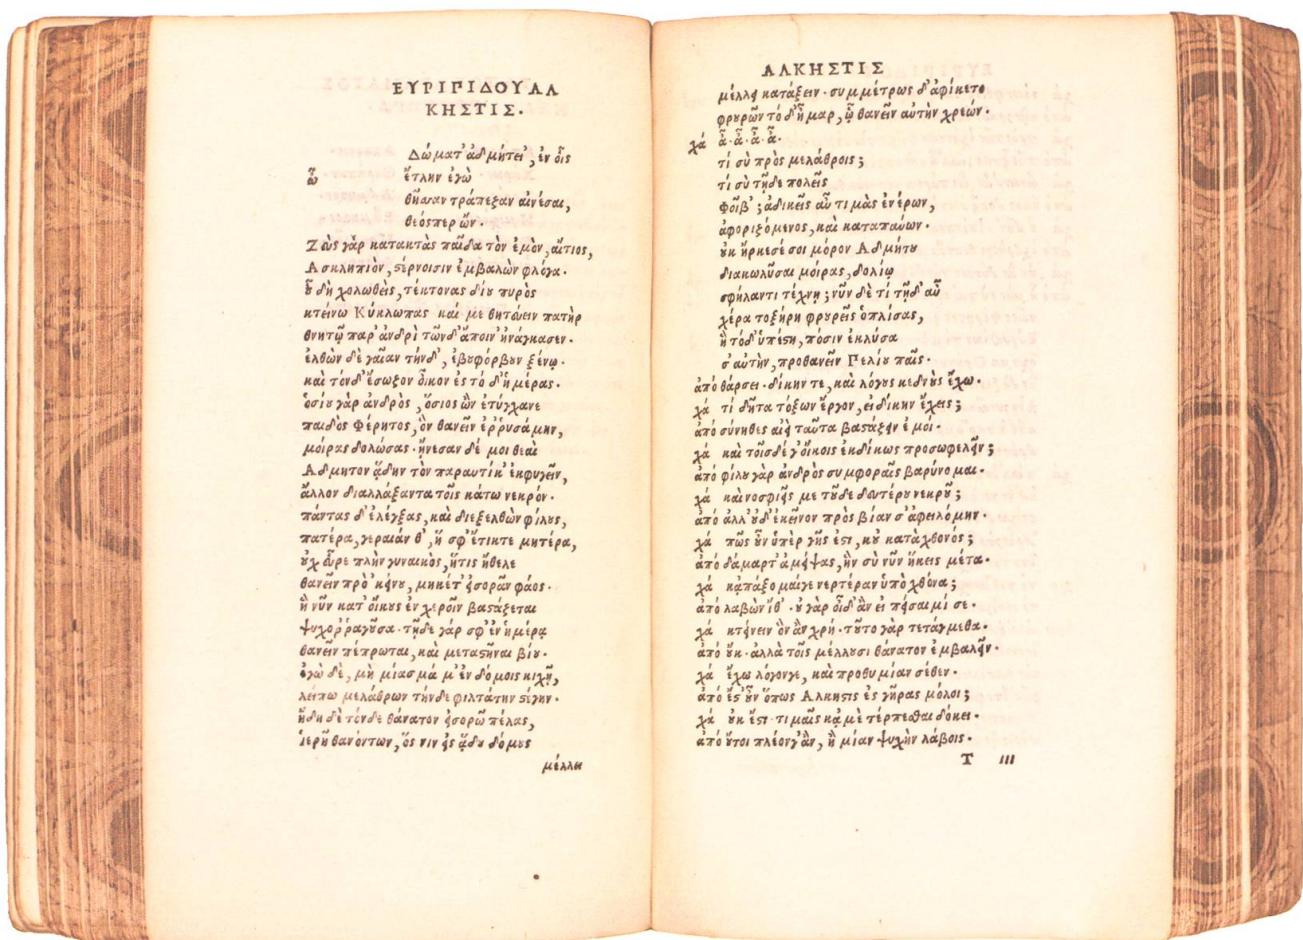 ΕΥΡΙΠΙΔΟΥ ΑΛ
ΚΗΣΤΙΣ.
Δώματ' ἀδμήτει', ἐν οἷς
ὦ ἔτλην ἐγὼ
θῆσσαν τράπεζαν αἰνέσαι,
θεός περ ὤν.
Ζεὺς γὰρ κατακτὰς παῖδα τὸν ἐμὸν, αἴτιος,
Ασκληπιὸν, στέρνοισιν ἐμβαλὼν φλόγα.
οὗ δὴ χολωθεὶς, τέκτονας δίου πυρὸς
κτείνω Κύκλωπας καί με θητεύειν πατὴρ
θνητῷ παρ' ἀνδρὶ τῶνδ' ἄποιν' ἠνάγκασεν.
ἐλθὼν δὲ γαῖαν τήνδ', ἐβουφόρβουν ξένῳ.
καὶ τόνδ' ἔσωζον οἶκον ἐς τό δ' ἡμέρας.
ὁσίου γὰρ ἀνδρὸς, ὅσιος ὢν ἐτύγχανε
παιδὸς Φέρητος, ὃν θανεῖν ἐῤῥυσάμην,
μοίρας δολώσας. ᾔνεσαν δέ μοι θεαὶ
Αδμητον ᾅδην τὸν παραυτίκ' ἐκφυγεῖν,
ἄλλον διαλλάξαντα τοῖς κάτω νεκρόν.
πάντας δ' ἐλέγξας, καὶ διεξελθὼν φίλους,
πατέρα, γεραιάν θ', ἥ σφ' ἔτικτε μητέρα,
οὐχ εὗρε πλὴν γυναικὸς, ἥτις ἤθελε
θανεῖν πρὸ 'κείνου, μηκέτ' εἰσορᾶν φάος.
ἣ νῦν κατ' οἴκους ἐν χεροῖν βαστάζεται
ψυχοῤῥαγοῦσα. τῇδε γάρ σφ' ἐν ἡμέρᾳ
θανεῖν πέπρωται, καὶ μεταστῆναι βίου.
ἐγὼ δὲ, μὴ μίασμά μ' ἐν δόμοις κιχῇ,
λείπω μελάθρων τήνδε φιλτάτην στέγην.
ἤδη δὲ τόνδε θάνατον εἰσορῶ πέλας,
ἱερῆ θανόντων, ὅς νιν εἰς ᾅδου δόμους
μέλλει
ΑΛΚΗΣΤΙΣ
μέλλει κατάξειν. συμμέτρως δ' ἀφίκετο
φρουρῶν τό δ' ἦμαρ, ᾧ θανεῖν αὐτὴν χρεών.
χά ἆ. ἆ. ἆ. ἆ.
τί σὺ πρὸς μελάθροις;
τί σὺ τῇδε πολεῖς
Φοῖβ'; ἀδικεῖς αὖ τιμὰς ἐνέρων,
ἀφοριζόμενος, καὶ καταπαύων.
οὐκ ἤρκεσέ σοι μόρον Αδμήτου
διακωλῦσαι μοίρας, δολίῳ
σφήλαντι τέχνῃ; νῦν δὲ τί τῇδ' αὖ
χέρα τοξήρη φρουρεῖς ὁπλίσας,
ἣ τόδ' ὑπέστη, πόσιν ἐκλύσα
σ' αὐτὴν, προθανεῖν Πελίου παῖς.
ἀπό θάρσει. δίκην τε, καὶ λόγους κεδνοὺς ἔχω.
χά τί δῆτα τόξων ἔργον, εἰ δίκην ἔχεις;
ἀπό σύνηθες αἰεὶ ταῦτα βαστάζειν ἐμοί.
χά καὶ τοῖσδέ γ' οἴκοις ἐκδίκως προσωφελεῖν;
ἀπό φίλου γὰρ ἀνδρὸς συμφοραῖς βαρύνομαι.
χά καὶ νοσφιεῖς με τοῦδε δευτέρου νεκροῦ;
ἀπό ἀλλ' οὐδ' ἐκεῖνον πρὸς βίαν σ' ἀφειλόμην.
χά πῶς οὖν ὑπὲρ γῆς ἐστι, κοὐ κατὰ χθονός;
ἀπό δάμαρτ' ἀμείψας, ἣν σὺ νῦν ἥκεις μέτα.
χά κἀπάξομαί γε νερτέραν ὑπὸ χθόνα;
ἀπό λαβὼν ἴθ'. οὐ γὰρ οἶδ' ἂν εἰ πείσαιμί σε.
χά κτείνειν ὃν ἂν χρή. τοῦτο γὰρ τετάγμεθα.
ἀπό οὔκ. ἀλλὰ τοῖς μέλλουσι θάνατον ἐμβαλεῖν.
χά ἔχω λόγον γε, καὶ προθυμίαν σέθεν.
ἀπό ἔστ' οὖν ὅπως Αλκηστις ἐς γῆρας μόλοι;
χά οὐκ ἔστι. τιμαῖς κἀμὲ τέρπεσθαι δόκει.
ἀπό οὔτοι πλέον γ' ἂν, ἢ μίαν ψυχὴν λάβοις.
T iii